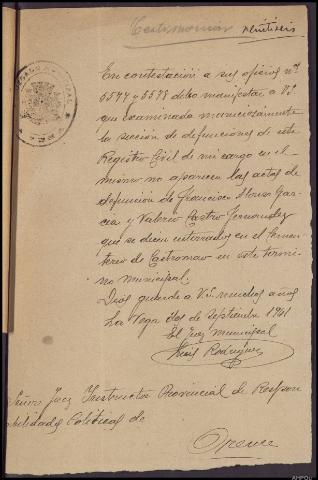 Castromao veintiseis
JUZGADO MUNICIPAL
En contestación a sus oficios nº
5577 y 5578 debo manifestar a Vd.
que examinada minuciosamente
la sección de defunciones de este
Registro Civil de mi cargo en el
mismo no aparecen las actas de
defunción de Francisco Alonso Gar-
cia y Valerio Castro Fernandez
que se dicen enterrados en el Cemen-
terio de Castromao en este termi-
no municipal.
Dios guarde a Vd. muchos años
La Vega de Septiembre 1941
El Juez Municipal
Rodriguez
Señor Juez Instructor Provincial de Respon
abilidades Politicas de
Orense
AHPOU